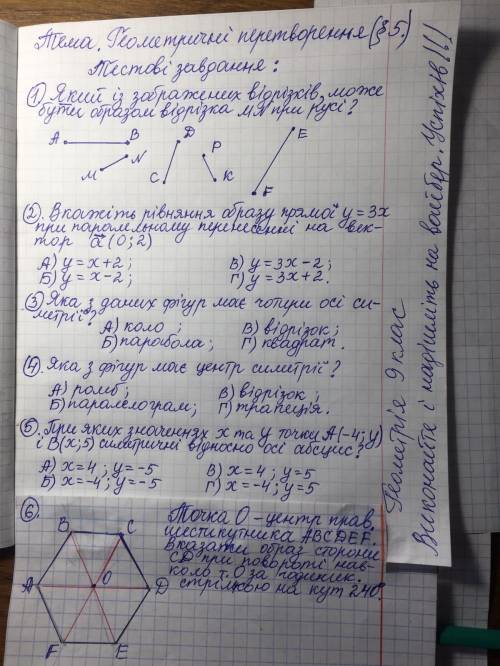 Тема. Геометричні перетворення (§5.)
Тестові завдання:
① Який із зображених відрізків, може
бути образом відрізка MN при русі?
A B D E
P
N
M
C K
F
②. Вкажіть рівняння образу прямої y = 3x
при паралельному перенесенні на век-
тор a⃗ (0; 2)
А) y = x + 2; В) y = 3x - 2;
Б) y = x - 2; Г) y = 3x + 2.
③ Яка з даних фігур має чотири осі си-
метрії?
А) коло ; В) відрізок;
Б) парабола; Г) квадрат.
④. Яка з фігур має центр симетрії?
А) ромб; В) відрізок;
Б) паралелограм; Г) трапеція.
⑤. При яких значеннях x та y точки A(-4; y)
і B(x; 5) симетричні відносно осі абсцис?
А) x = 4 ; y = -5 В) x = 4 ; y = 5
Б) x = -4; y = -5 Г) x = -4; y = 5
⑥.
B C
A O D
F E
Точка О - центр прав.
шестикутника ABCDEF.
Вказати образ сторони
CD при повороті нав-
коло т. О за годинник.
стрілкою на кут 240°.
Геометрія 9 клас
Виконайте і надішліть на вайбер. Успіхів!!!